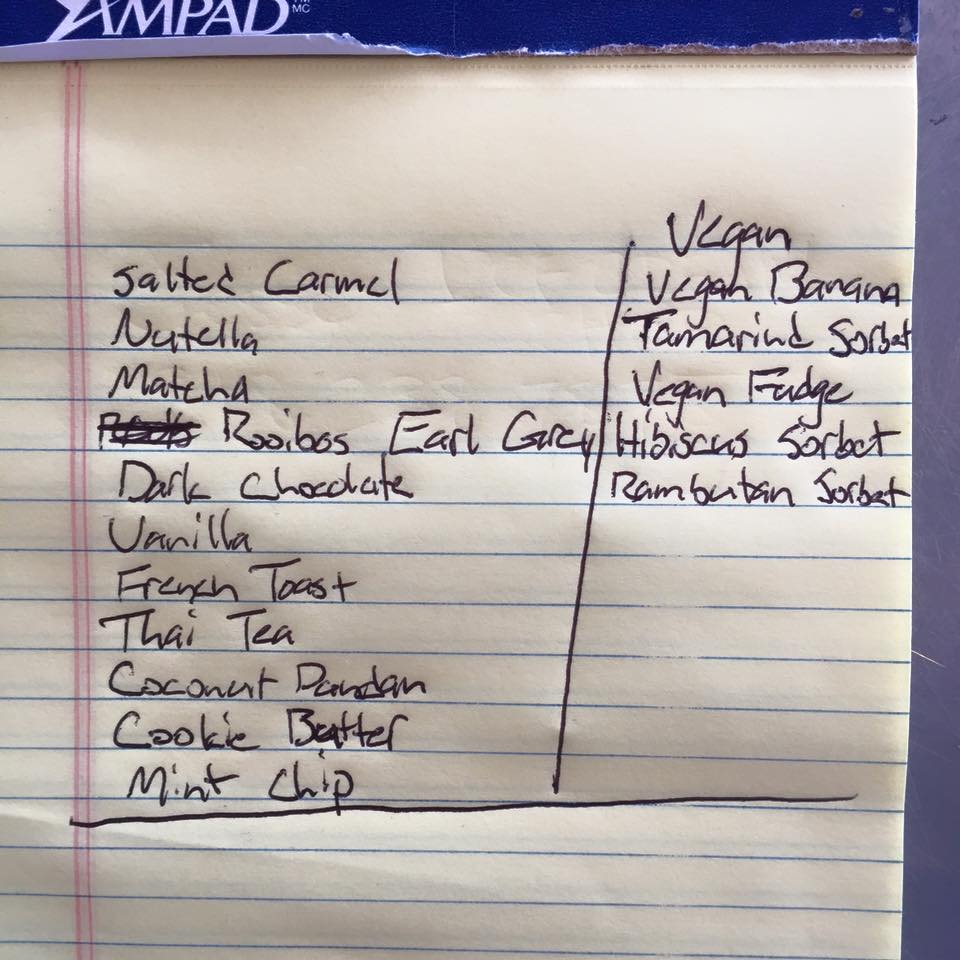 AMPAD
MC
Vegan
Salted Carmel
Nutella
Matcha
Rooibos Earl Grey
Dark Chocolate
Vanilla
French Toast
Thai Tea
Coconut Pandan
Cookie Butter
Mint Chip
Vegan Banana
Tamarind Sorbet
Vegan Fudge
Hibiscus Sorbet
Rambutan Sorbet